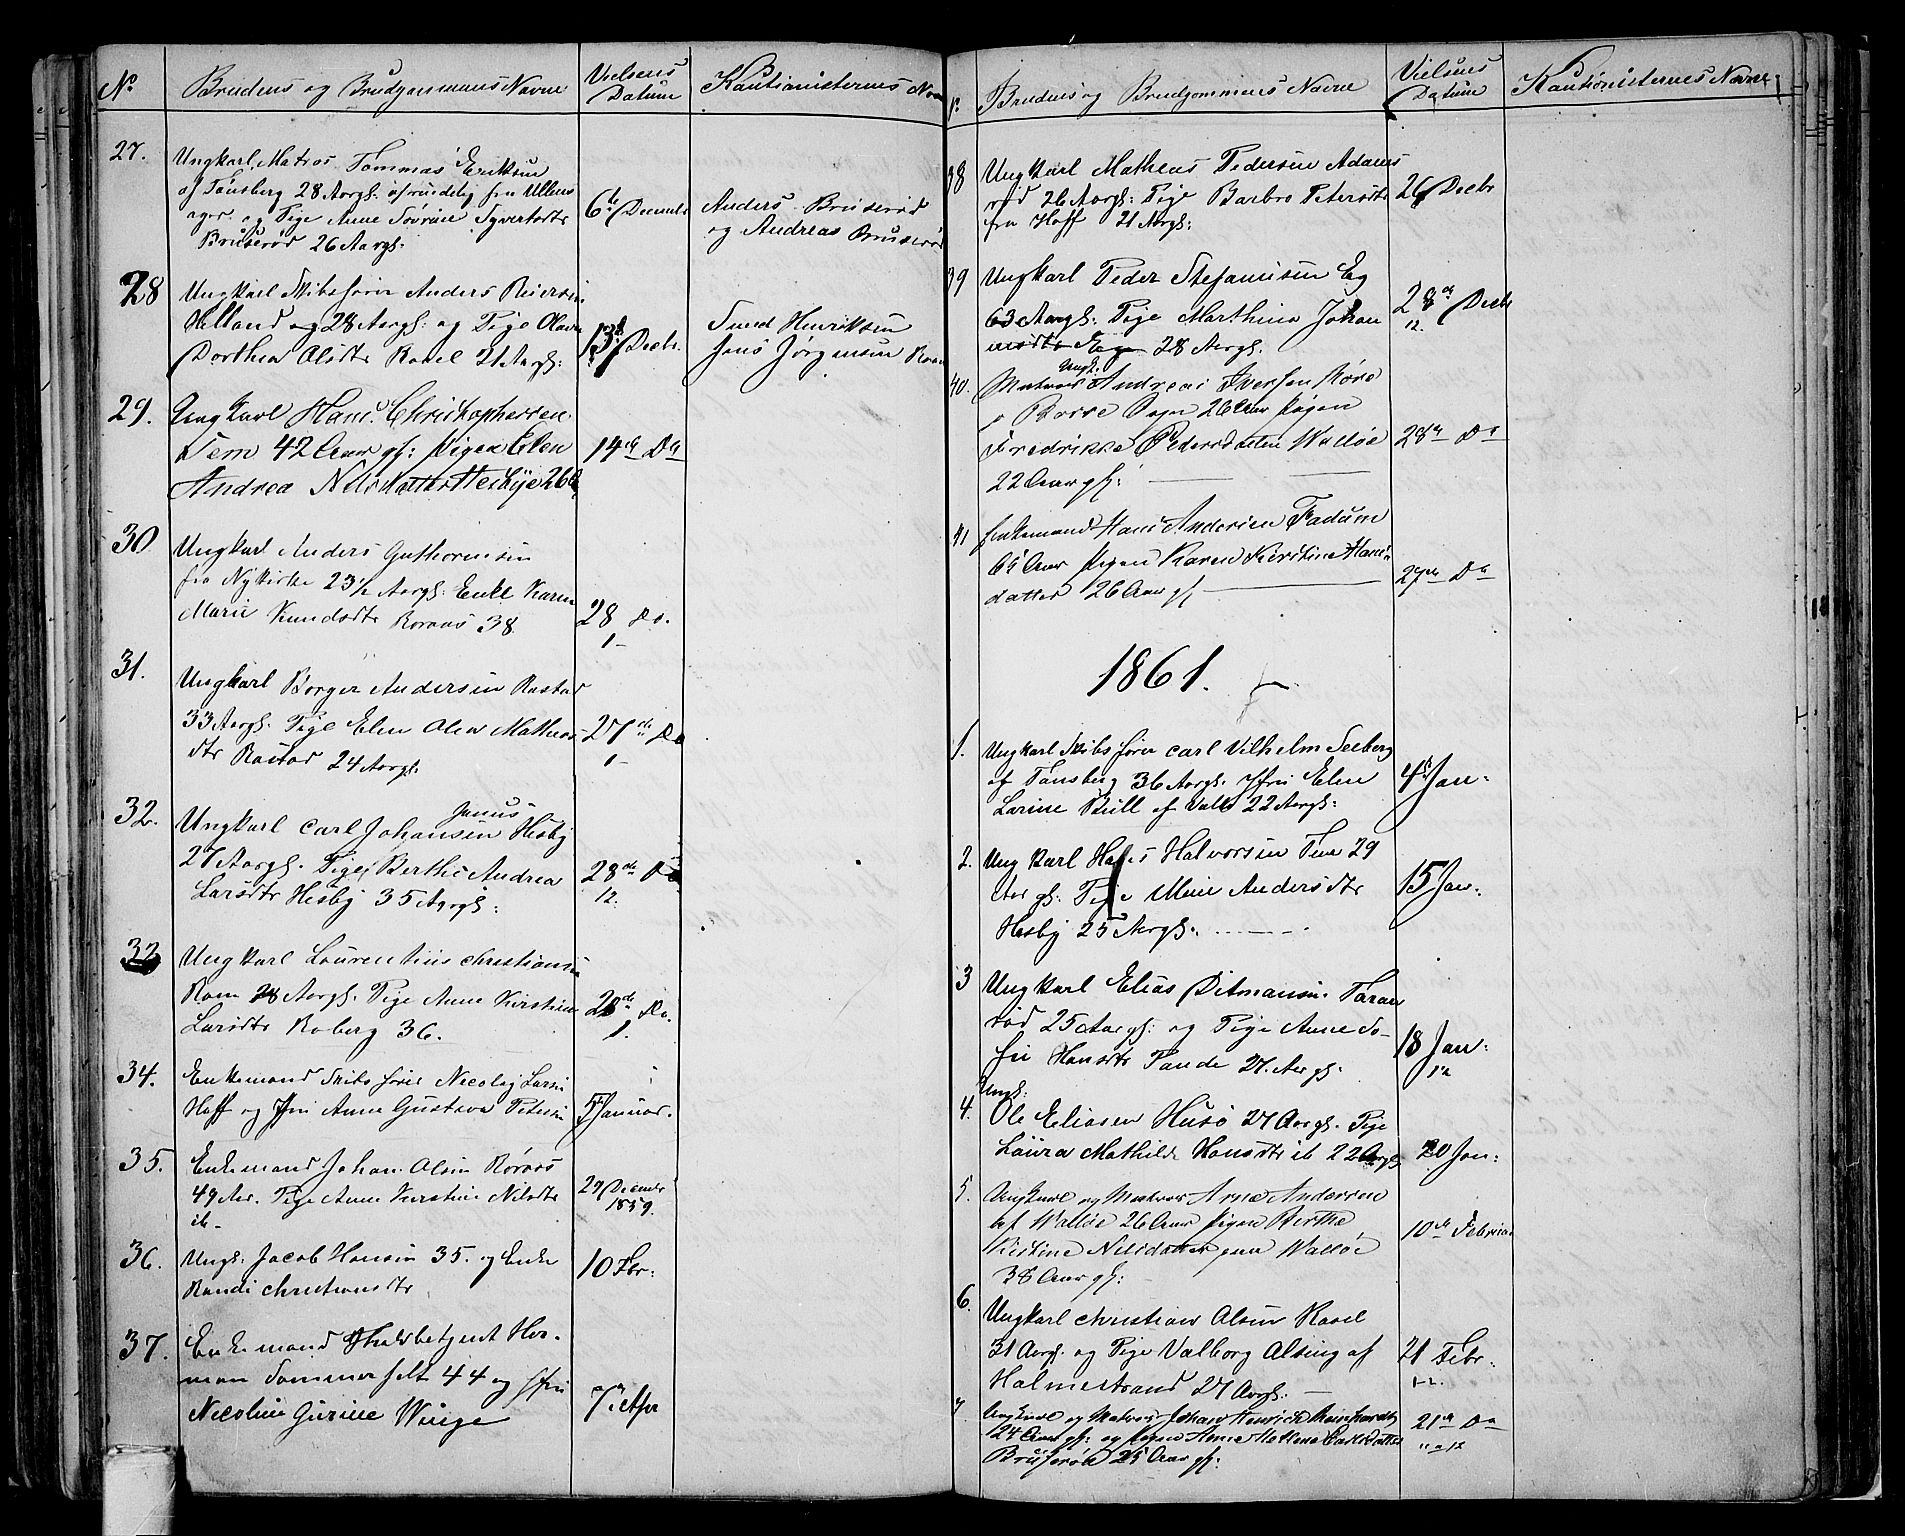 No Brudens og Brudgommens Navne Vielsens Datum Kautionisternes Navne
27. Ungkarl Matros Tommas Eriksen
af Tønsberg 28 Aargl. oprindelig fra Ullens
ager og Pige Anne Sørine Syvertsdtr
Bruserød 26 Aargl:
6te Decembr
Anders Bruserød
og Andreas Bruserød
28 Ungkarl Skibsfører Anders Reiersen
Helland og 28 Aargl: og Pige Olava
Dorthea Olsdtr Rosel 21 Aargl:
13 Decbr.
Henriksen
Jens Jørgensen
29. Ungkarl Hans Christophersen
Tem 42 Aar gl: Pigen Elen
Andrea Nilsdatter Hesbye 26
14de Do
30 Ungkarl Anders Guthormsen
fra Nykirke 23 1/2 Aargl: Enke Karen
Marie Knudsdtr Roraas 38
28 Do.
1-
31. Ungkarl Borger Andersen Rastad
33 Aargl. Pige Elen Olea Mathias
dtr Rastad 24 Aargl.
27de Do
1-
32. Ungkarl Carl Johansen Hesby
Janus
27 Aargl. Pige Berthe Andrea
Larsdtr Hesby 35 Aargl:
28de Do
12.
33 Ungkarl Laurentius Christiansen
Ram 28 Aargl. Pige Anne Kirstine
Larsdtr Roberg 36.
28de Do.
1.
34. Enkemand Skibsfører Nicolay Larsen
Hoff og Jfru Anne Gustava Petersen
5 Januar.
35. Enkemand Johan Olsen Roraas
49 Aar. Pige Anne Kirstine Nilsdtr
ib-
29 December
1859.
36. Ungk: Jacob Hansen 35. og Enke
Randi Christiansdtr
10 Fbr:
37. Enkemand Her-
man Sommerfelt 44 og Jfru
Nicoline Gurine Winge
7 Apr
No Brudens og Brudgommens Navne Vielsens Datum Kautionisternes Navne
38 Ungkarl Matheas Pedersen Adams
rød 26 Aargl: Pige Barbro Petersdtr
fra Hoff 21 Aargl:
26 Decbr
39 Ungkarl Peder Stefansen Eg
63 Aargl: Pige Marthina Johan
nesdtr Eg 28 Aargl.
28de Decbr
12.
40. Matros Ungk. Andreas Iversen Røre
Borre Sogn 26 Aar Pigen
Fredrikke Pedersdatter Walløe
22 Aar gl:
28de Do
41 Enkemand Hans Andersen Fadum
Aar Pigen Karen Kirstine Hans
datter 26 Aar gl
27de Do
1861.
1. Ungkarl Skibsfører Carl Vilhelm Seeberg
af Tønsberg 36 Aargl. Jfru Elen
Larine Bull af Vallø 22 Aargl:
4de Jan:
2. Ungkarl Hans Halvorsen Tem 29
Aar gl: Pige Mine Andersdtr
Hesby 25 Aargl.
15 Jan:
3 Ungkarl Elias Ditmansen Taran
rød 25 Aargl: og Pige Anne So-
fie Hansdtr Tande 27. Aargl:
18 Jan:
12
4. Ungk: Ole Eliasen Husø 27 Aargl. Pige
Laura Mathilde Hansdtr ib 22 Aargl
20 Jan:
5. Ungkarl og Matros Arne Andersen
af Walløe 26 Aar Pigen Berthe
Kistine Nilsdatter Walløe
38 Aar gl:
10de Februar
6. Ungkarl Christian Olsen Rosel
31 Aargl. og Pige Valborg Alsing af
Holmestrand 27 Aargl.
21 Febr.
12.
7 Ungkarl og Matros Johan Henrich Reinhardt
24 Aar gl: og Pigen Anne Mathea Carlsdatter
Bruserød 25 Aar gl:
21de Do